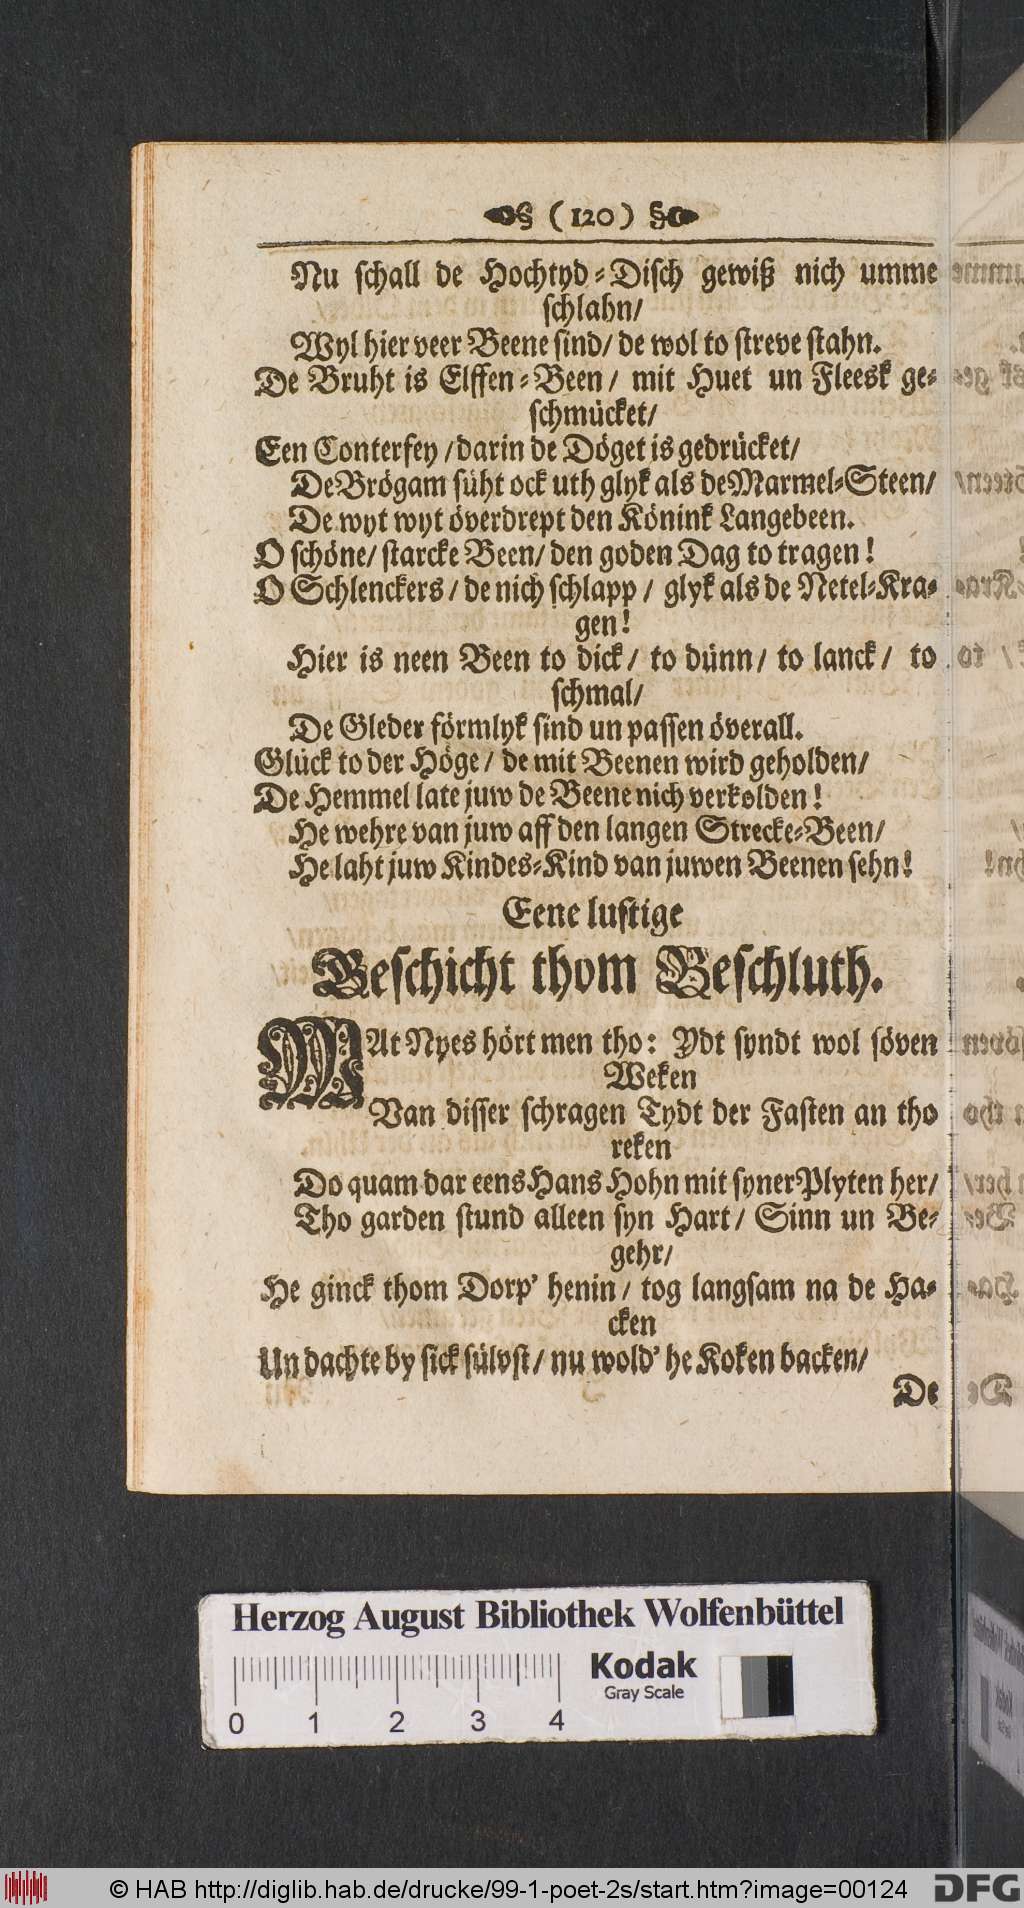 ( 120 )
Nu schall de Hochtyd-Disch gewiß nich umme
schlahn/
Wyl hier veer Beene sind/ de wol to streve stahn.
De Bruht is Elffen-Been/ mit Huet un Fleesk ge-
schmücket/
Een Conterfey/ darin de Döget is gedrücket/
De Brögam süht ock uth glyk als de Marmel-Steen/
De wyt wyt överdrept den Könink Langebeen.
O schöne/ starcke Been/ den goden Dag to tragen!
O Schlenckers/ de nich schlapp/ glyk als de Netel-Kra-
gen!
Hier is neen Been to dick/ to dünn/ to lanck/ to
schmal/
De Gleder förmlyk sind un passen överall.
Glück to der Höge/ de mit Beenen wird geholden/
De Hemmel late juw de Beene nich verkolden!
He wehre van juw aff den langen Strecke-Been/
He laht juw Kindes-Kind van juwen Beenen sehn!
Eene lustige
Geschicht thom Beschluth.
WAt Nyes hört men tho: Ydt syndt wol söven
Weken
Van disser schragen Tydt der Fasten an tho
reken
Do quam dar eens Hans Hohn mit syner Plyten her/
Tho garden stund alleen syn Hart/ Sinn un Be-
gehr/
He ginck thom Dorp' henin/ tog langsam na de Ha-
cken
Un dachte by sick sülvst/ nu wold' he Koken backen/
De
Herzog August Bibliothek Wolfenbüttel
Kodak
Gray Scale
0 1 2 3 4
© HAB http://diglib.hab.de/drucke/99-1-poet-2s/start.htm?image=00124
DFG